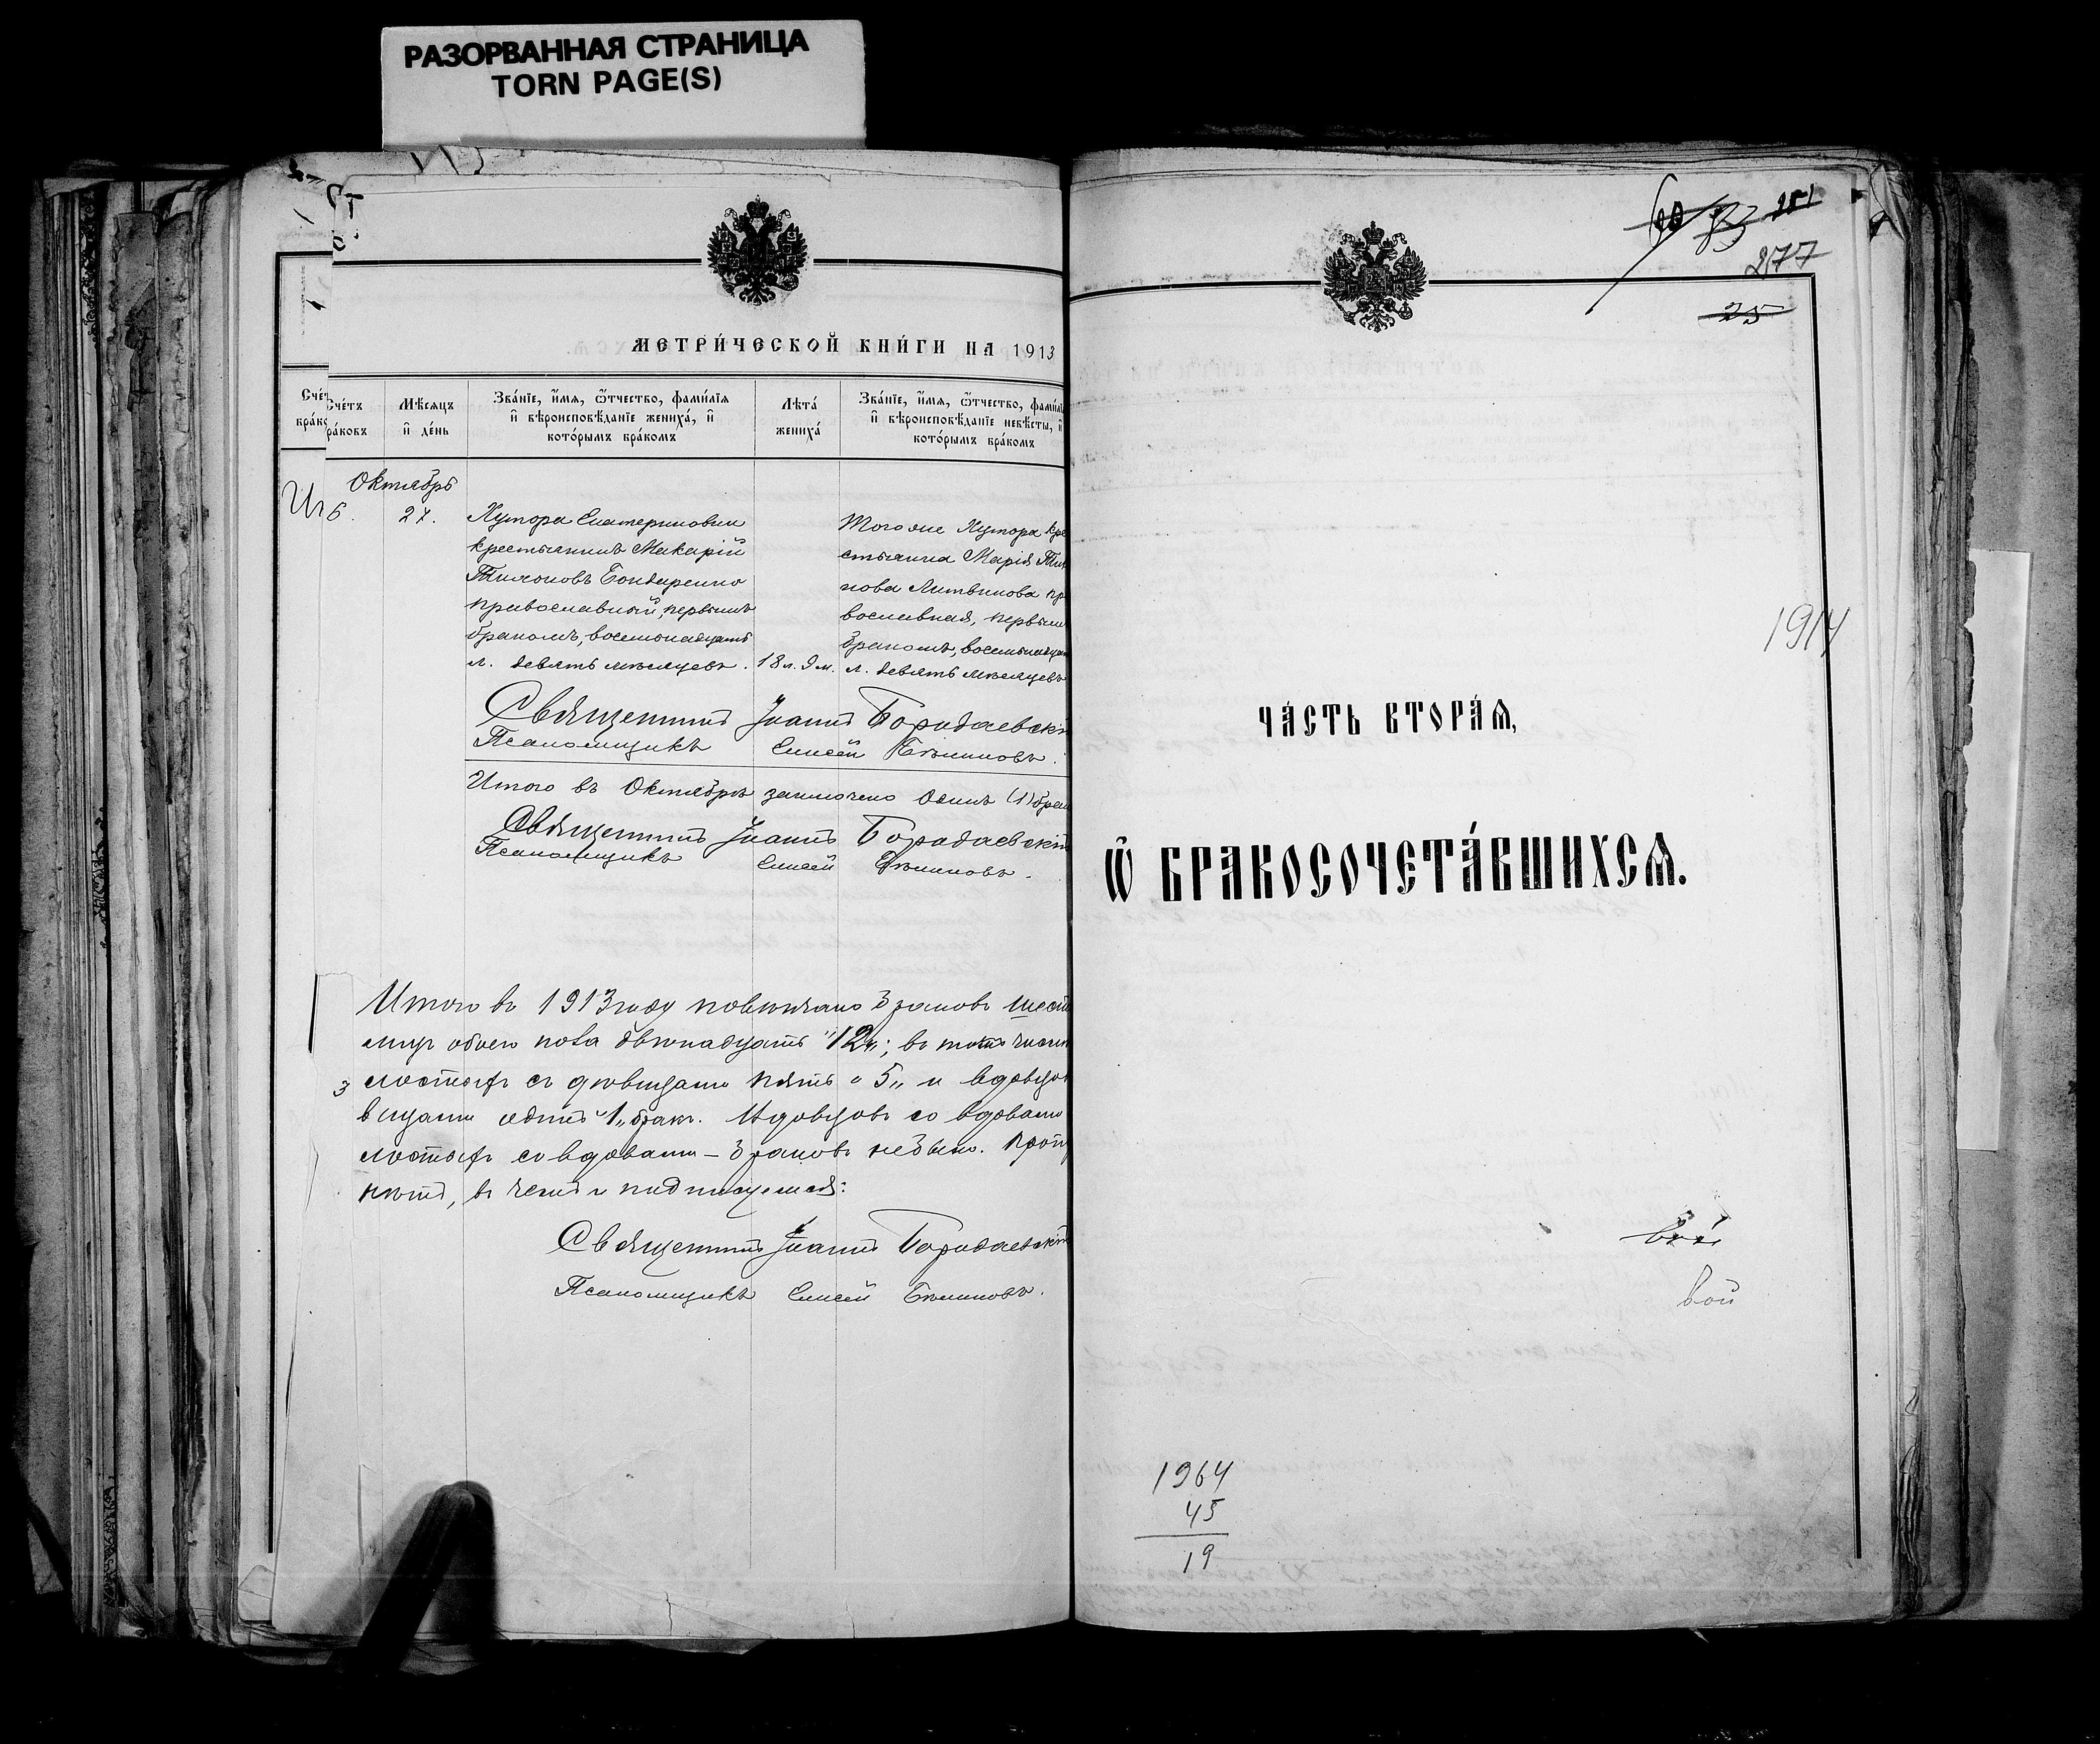 РАЗОРВАННАЯ СТРАНИЦА
TORN PAGE(S)
МЕТРИ́ЧЕСКОЙ КНИ́ГИ НА 1913
Сче́тъ
бра́ко
Сче́тъ
ра́ковъ
Мѣ́сяцъ
и҆ де́нь
Зва́нїе, и҆́мѧ, ѻ҆́тчество, фами́лїѧ
и҆ вѣроисповѣ́данїе жениха́, и҆
кото́рымъ бра́комъ
Лѣта́
жениха́
Зва́нїе, и҆́мѧ, ѻ҆́тчество, фами́лї
и҆ вѣроисповѣ́данїе невѣ́сты, и҆
кото́рымъ бра́комъ
Октябрь
6. 27.
Хутора Екатериновки
крестьянинъ Макарій
Тихоновъ Бондаренко
православный, первымъ
бракомъ, восемьнадцать
л. девять мѣсяцевъ. 18 л. 9 м.
Того же Хутора кре
стьянка Марія Тих
нова Литвинова пр
вославная, первым
бракомъ, восемьнадцат
л. девять мѣсяцевъ
Священникъ Іоаннъ Бородаевскій
Псаломщикъ Елисей Бѣликовъ.
Итого въ Октябрѣ заключено Одинъ (1) брак
Священникъ Іоаннъ Бородаевскій
Псаломщикъ Елисей Бѣликовъ.
Итого въ 1913 году повѣнчано браковъ шест
лицъ обоего пола двѣнадцать "12"; въ томъ числѣ
лостыхъ съ дѣвицами пять "5" и вдовцов
вицами одинъ "1" бракъ. Вдовцовъ со вдовами
лостыхъ со вдовами – браковъ не было.
нѣтъ, въ чемъ и подписуемся:
Священникъ Іоаннъ Бородаевскій
Псаломщикъ Елисей Бѣликовъ.
60 83 251
277
25
1914
ЧА́СТЬ ВТОРА́Ѧ,
Ѽ БРАКОСОЧЕТА́ВШИХСѦ.
вой
1964
45
19